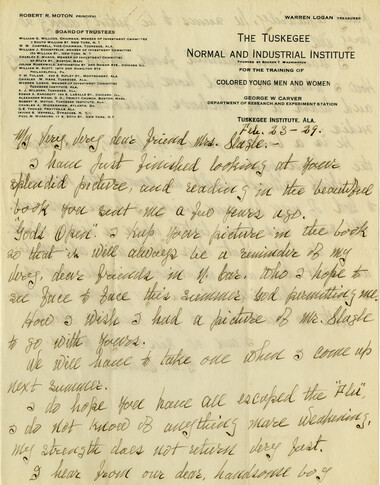 ROBERT R. MOTON PRINCIPAL
WARREN LOGAN TREASURER
BOARD OF TRUSTEES
THE TUSKEGEE
NORMAL AND INDUSTRIAL INSTITUTE
FOUNDED BY BOOKER T. WASHINGTON
FOR THE TRAINING OF
COLORED YOUNG MEN AND WOMEN
GEORGE W CARVER
DEPARTMENT OF RESEARCH AND EXPERIMENT STATION
TUSKEGEE INSTITUTE, ALA.
Feb. 23-29.
My Very, Very dear friend Mrs. Slagle:-
I have just finished looking at your
splendid picture, and reading in the beautiful
book you sent me a few years ago.
"Gods Open" I kep your picture in the book
so that it will always be a reminder of my
very, dear friends in N. Car. Who I hope to
see face to face this summer God permitting me.
How I wish I had a picture of Mr. Slagle
to go with yours.
We will have to take one when I come up
next summer.
I do hope you have all escaped the "Flu",
I do not know of anything more weakening,
my strength does not return very fast.
I hear from our dear, handsome boy